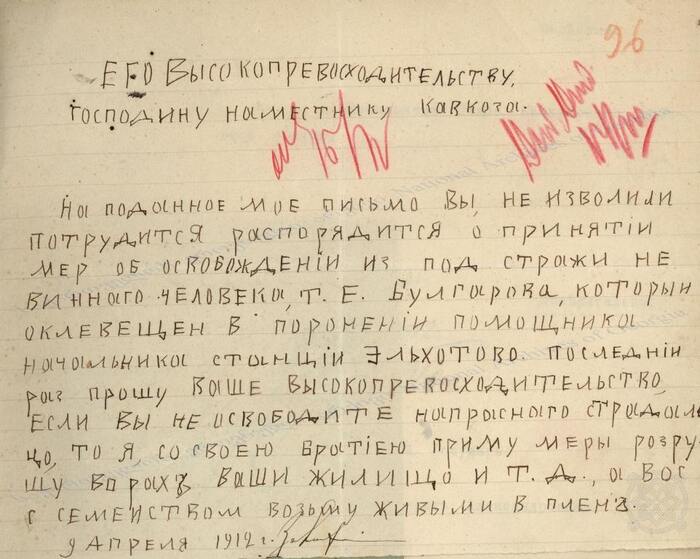 96
ЕГО ВЫСОКОПРЕВОСХОДИТЕЛЬСТВУ,
ГОСПОДИНУ НАМЕСТНИКУ КАВКОЗА.
На поданное мое письмо Вы, не изволили
потрудится распорядится о принятіи
мер об освобожденіи из под стражи не
винного человека, Т. Е. Булгарова, которыи
оклевещен в пороненіи помощника
начальника станціи Эльхотово. Последніи
раз прошу Ваше Высокопревосходительство,
если Вы не освободите напрасного страдаль
цо, то я со своею братіею приму меры розру
шу впрахъ ваши жилищо и Т. Д., а вос
с семейством возьму живыми в пленъ.
9 Апреля 1912 г.